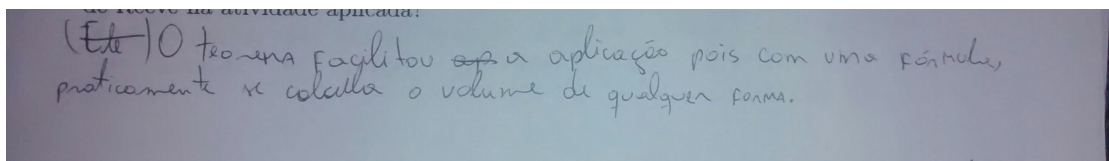 de Reeve na atividade aplicada?
(Este) O teorema facilitou a aplicação pois com uma fórmula,
praticamente se calculla o volume de qualquer forma.